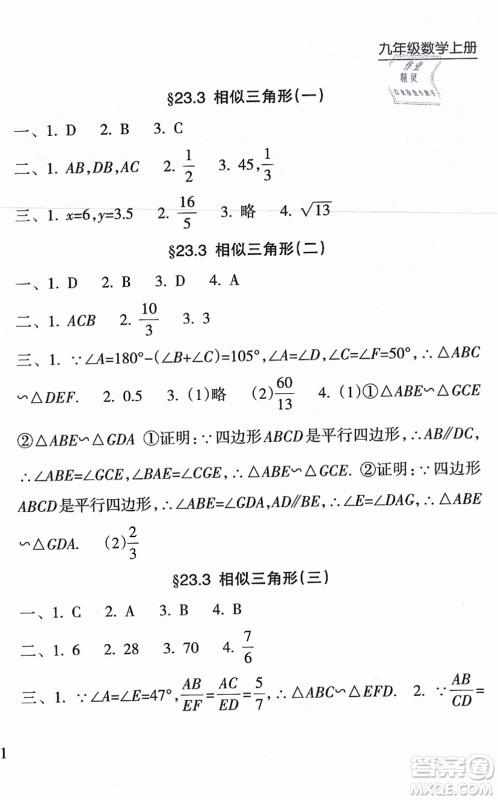 九年级数学上册
作业
精灵
§23.3 相似三角形(一)
一、1. D 2. B 3. C
二、1. AB,DB,AC 2. 1/2 3. 45, 1/3
三、1. x=6,y=3.5 2. 16/5 3. 略 4. √13
§23.3 相似三角形(二)
一、1. D 2. D 3. D 4. A
二、1. ACB 2. 10/3 3. 3
三、1. ∵∠A=180°-(∠B+∠C)=105°,∠A=∠D,∠C=∠F=50°,∴△ABC
∽△DEF. 2. 0.5 3. (1)略 (2)60/13 4. (1)①△ABE∽△GCE
②△ABE∽△GDA ①证明:∵四边形ABCD是平行四边形,∴AB∥DC,
∴∠ABE=∠GCE,∠BAE=∠CGE,∴△ABE∽△GCE. ②证明:∵四边形
ABCD是平行四边形,∴∠ABE=∠GDA,AD∥BE,∴∠E=∠DAG,∴△ABE
∽△GDA. (2)2/3
§23.3 相似三角形(三)
一、1. C 2. A 3. C
二、1. 6 2. 28 3. 70 4. 7/6
三、1. ∵∠A=∠E=47°,AB/EF=AC/ED=5/7,∴△ABC∽△EFD. 2. ∵AB/CD=
1
答案圈
MXQE.COM